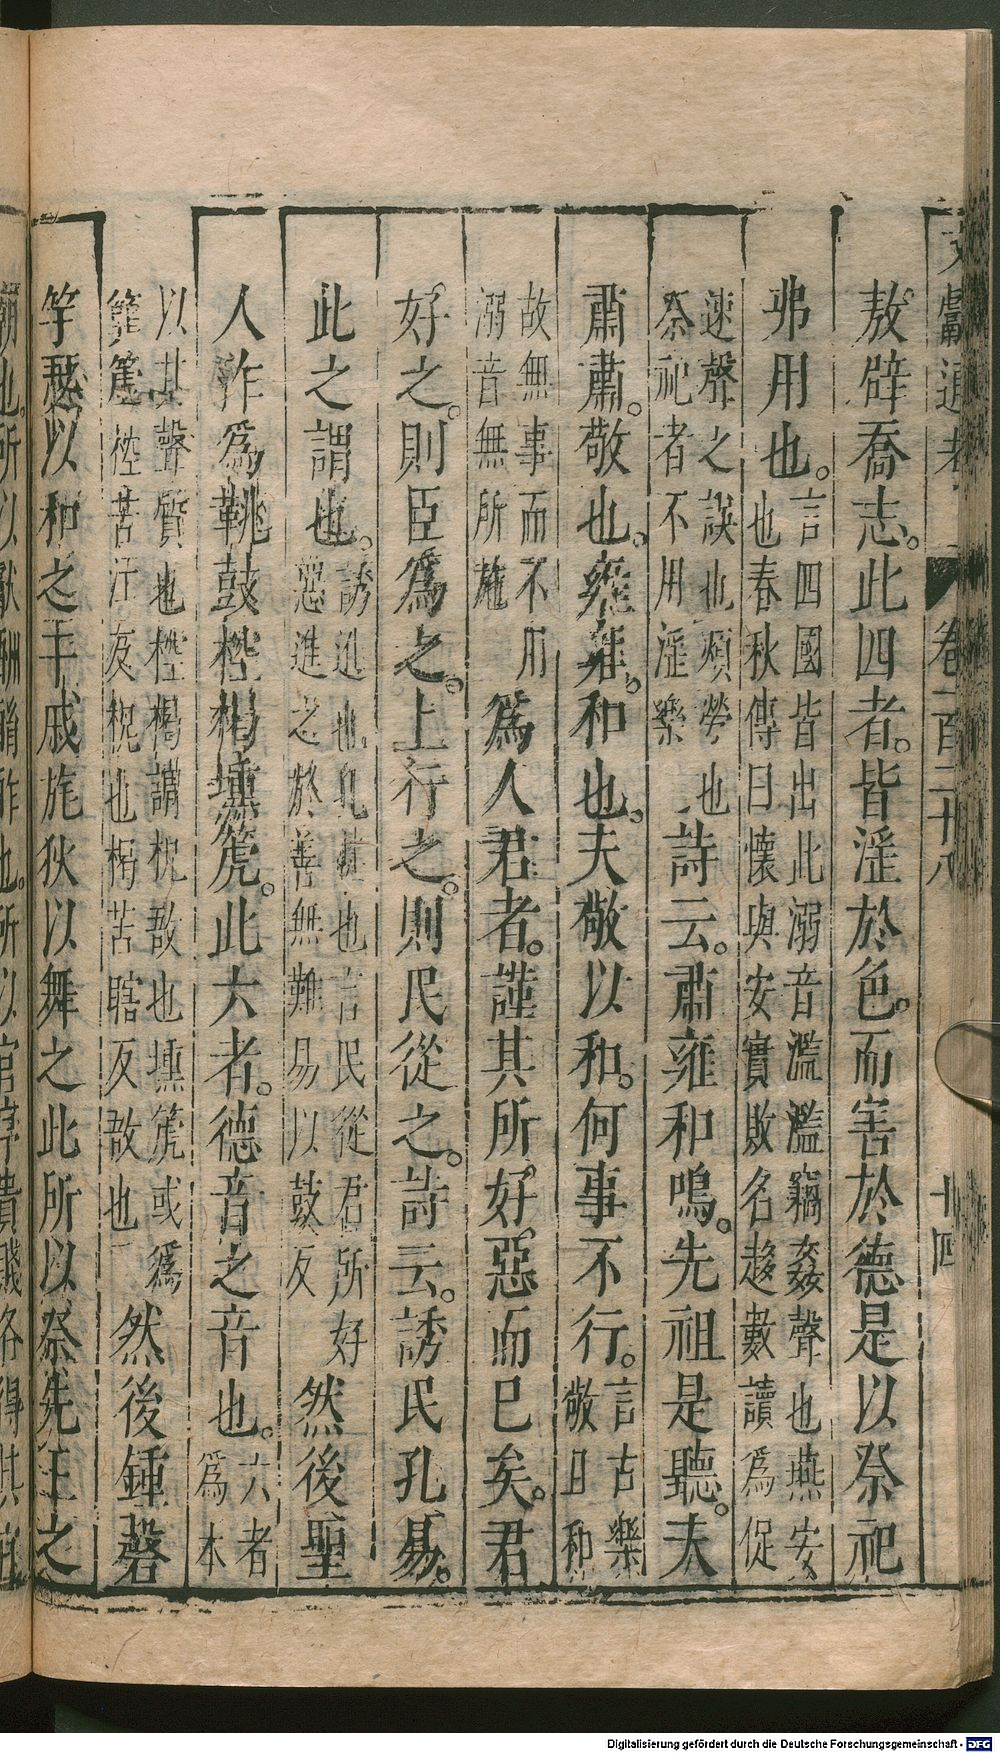 文獻通考 卷一百二十八 十四
敖辟喬志。此四者。皆淫於色。而害於德是以祭祀
弗用也。言四國皆出此溺音濫濫竊姦聲也燕安
也春秋傳曰懷與安實敗名趍數讀爲促
速聲之誤也煩勞也
祭祀者不用淫樂
詩云。肅雍和鳴。先祖是聽。夫
肅肅。敬也。雍雍。和也。夫敬以和。何事不行。言古樂
敬且和
故無事而不用
溺音無所施
爲人君者。謹其所好。惡而巳矣。君
好之。則臣爲之。上行之。則民從之。詩云。誘民孔易。
此之謂也。誘進也孔甚也言民從君所好
惡進之於善無難易以鼓反
然後聖
人作爲鞉鼓椌楬壎箎。此六者。德音之音也。六者
爲本
以其聲質也椌楬謂柷敔也壎箎或爲
簨簴椌苦汗反柷也楬苦瞎反敔也
然後鍾磬
竽瑟以和之干戚旄狄以舞之此所以祭先王之
廟也。所以獻酬酳酢也。所以官序貴賤各得其宜
Digitalisierung gefördert durch die Deutsche Forschungsgemeinschaft - DFG